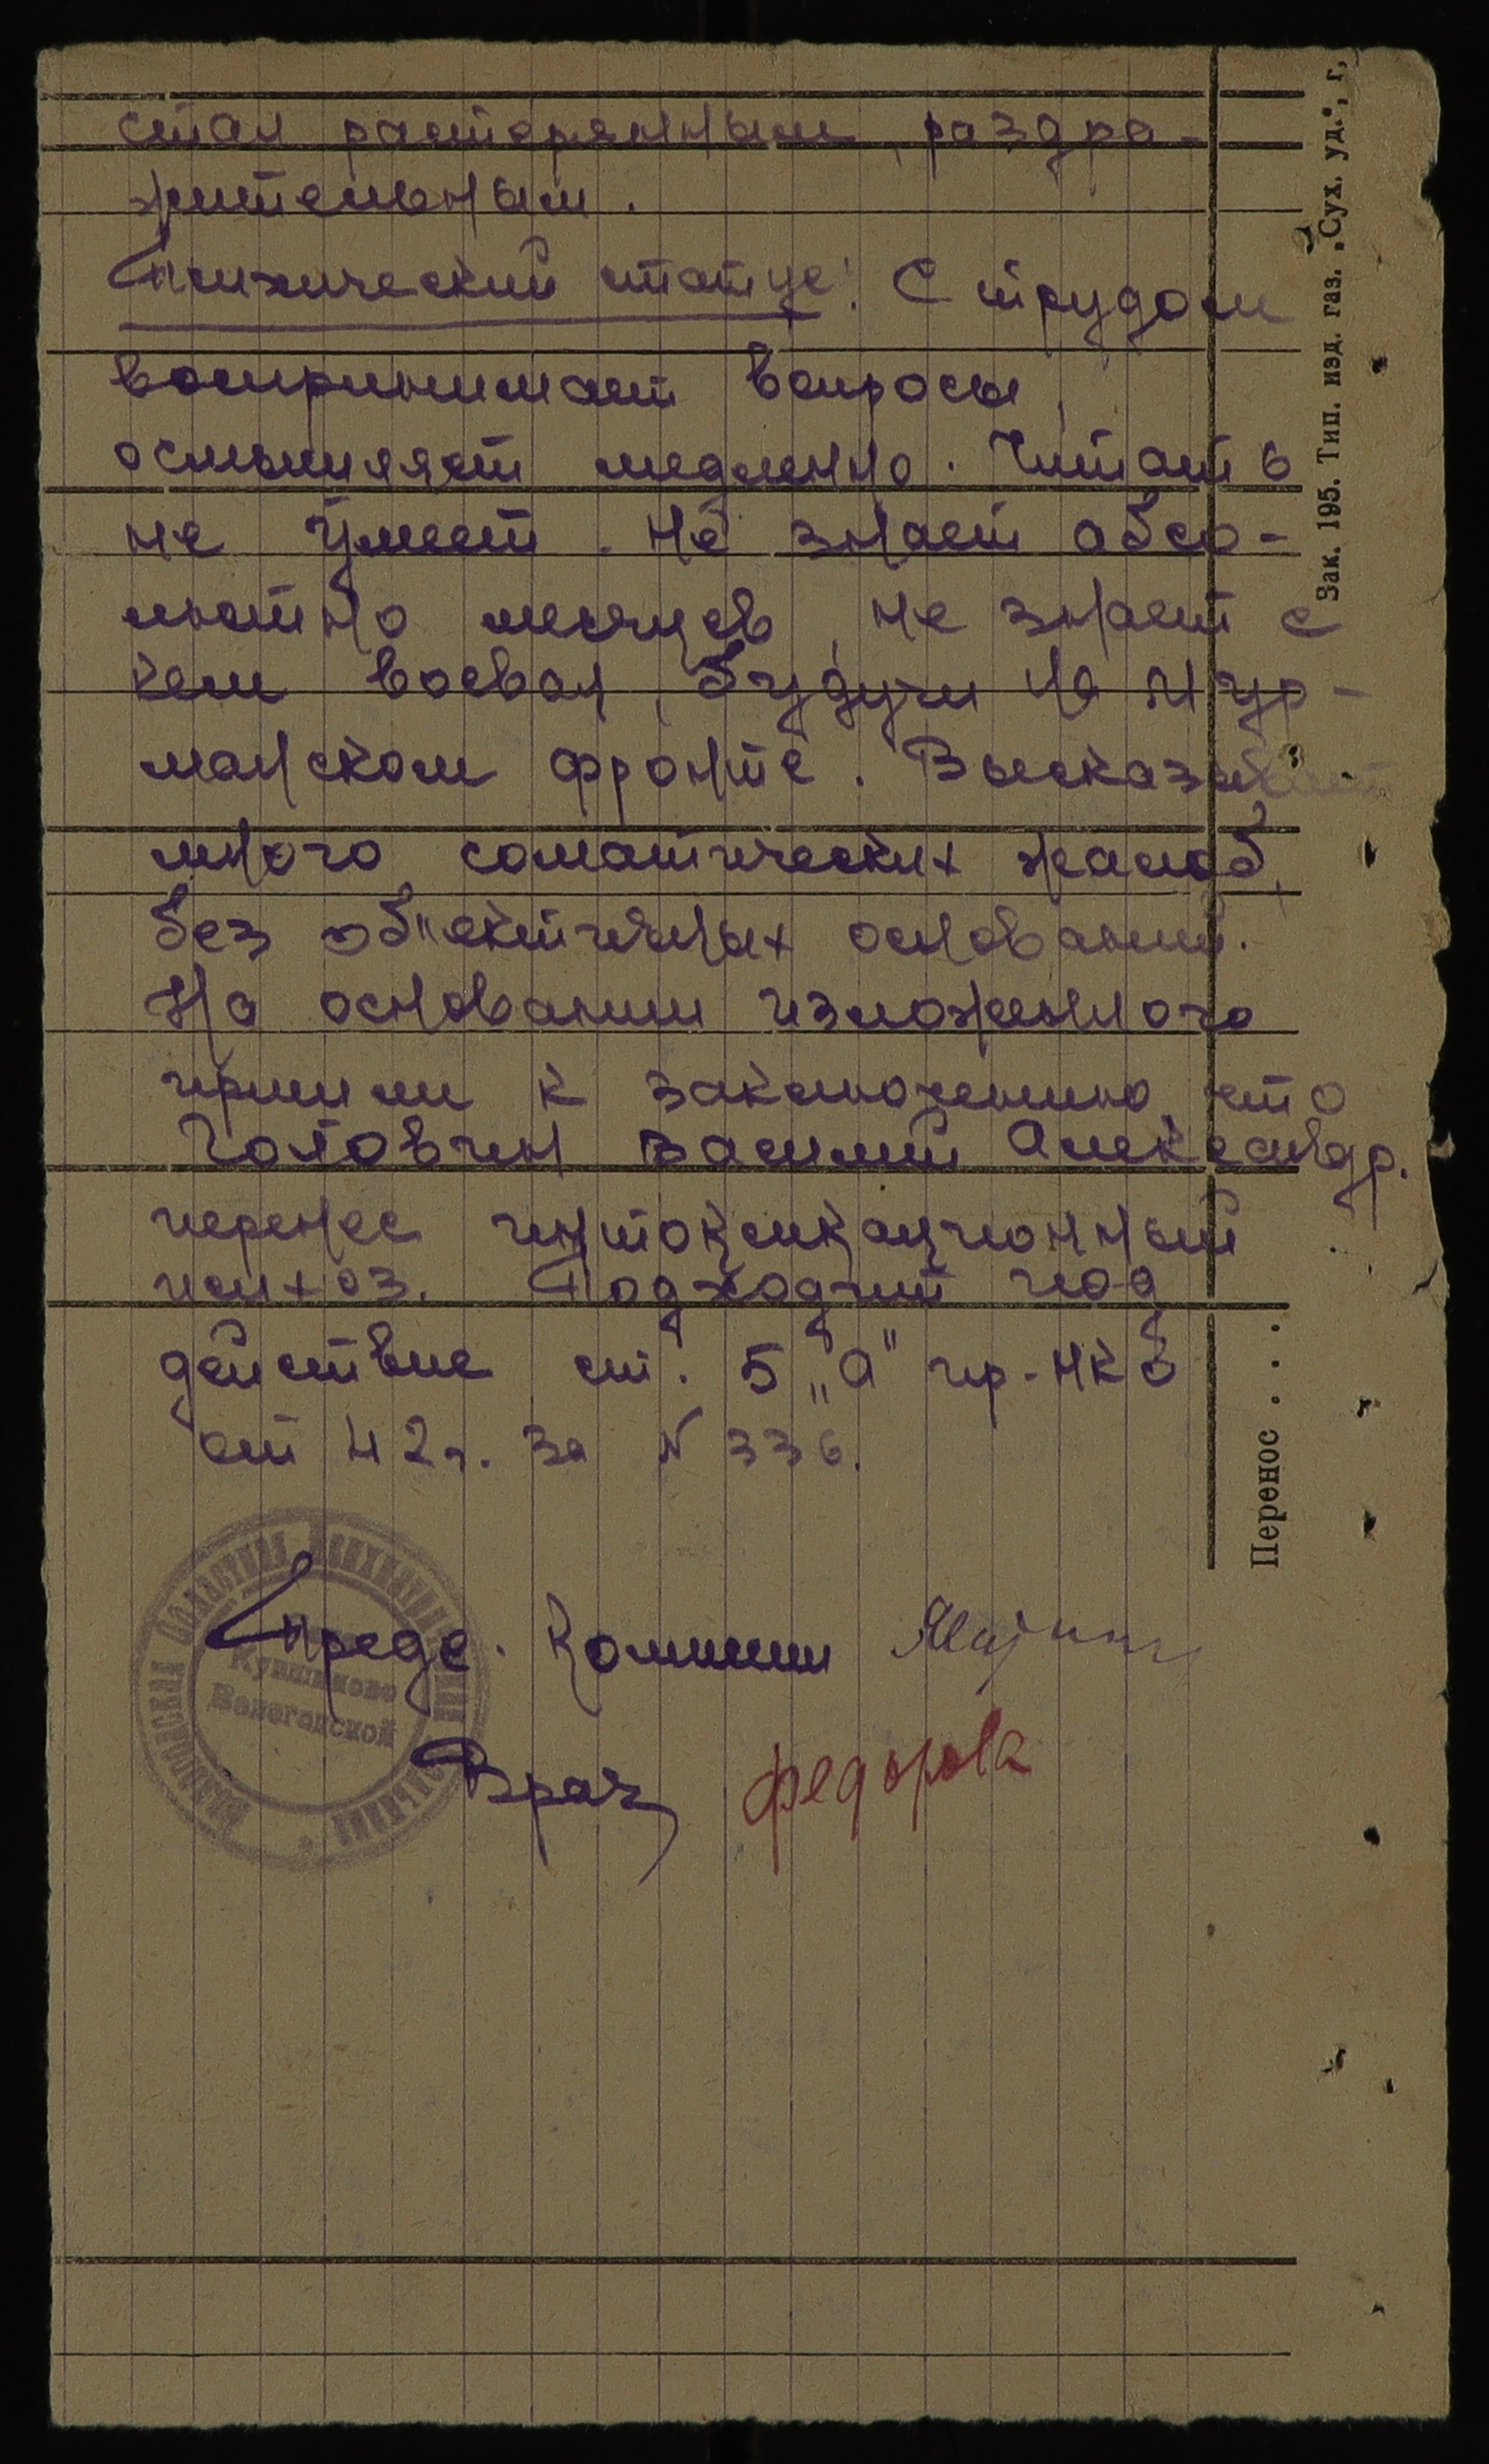 стал растерянным, раздра-
жительным.
Психический статус: С трудом
воспринимает вопросы,
осмышляет медленно. Читать
не умеет. Не знает абсо-
лютно месяцев, не знает с
кем воевал, будучи на Мур-
манском фронте. Высказывает
много соматических жалоб,
без об"ективных оснований.
На основании изложенного
пришли к заключению, что
Головчин Василий Александр.
перенес интоксикационный
психоз. Подходит под
действие ст. 5 „а" пр. НКО
от 42 г. за N 336.
Предс. Комиссии
Врач Федорова
Вологодская Областная Психиатрическая больница
Кувшиново
Вологодской
Зак. 195. Тип. изд. газ. „Сух. уд.", г.
Перенос . . .